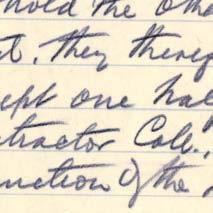 hold the oth
t, they there
ept one hal
tractor Col.,
unction of the